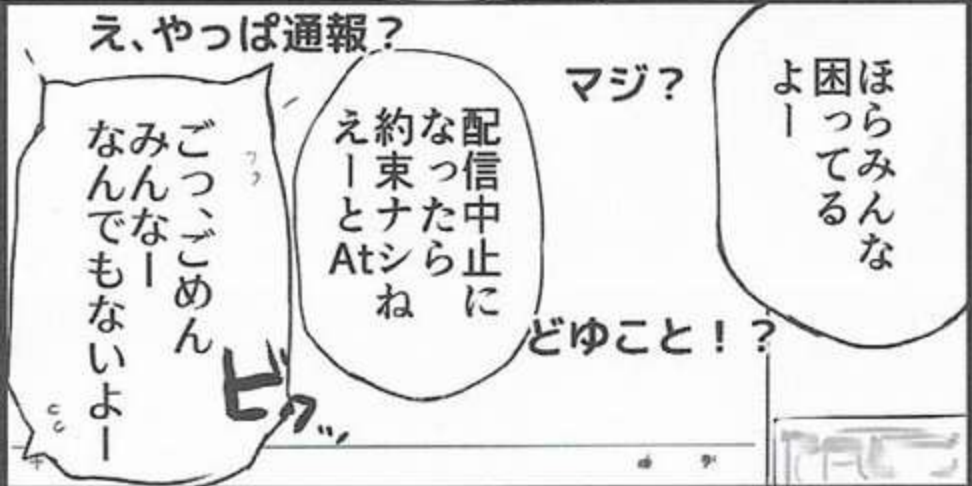 ほらみんな
困ってる
よー
マジ?
どゆこと!?
配信中止に
なったら
約束ナシね
えーとAt
え、やっぱ通報?
ごっ、ごめん
みんなー
なんでもないよー
ビクッ